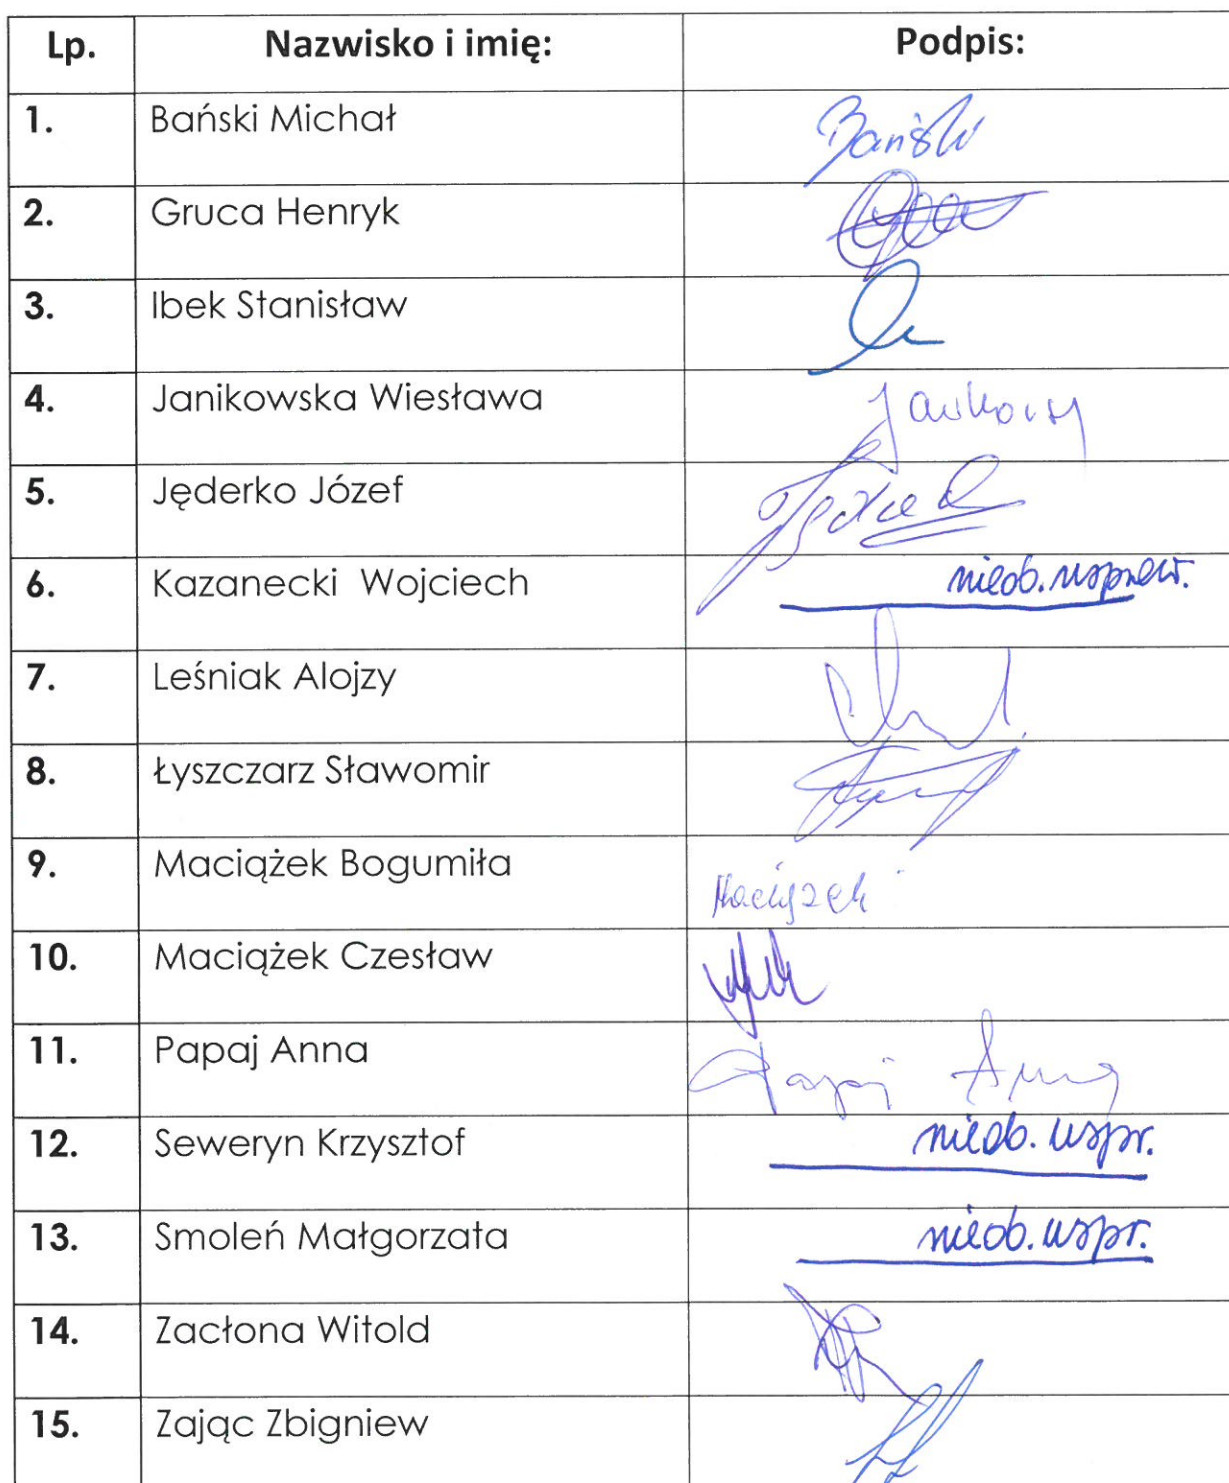 Lp. Nazwisko i imię: Podpis:
1. Bański Michał Bański
2. Gruca Henryk
3. Ibek Stanisław
4. Janikowska Wiesława
5. Jęderko Józef
6. Kazanecki Wojciech nieob. uspraw.
7. Leśniak Alojzy
8. Łyszczarz Sławomir
9. Maciążek Bogumiła Maciążek
10. Maciążek Czesław
11. Papaj Anna Papaj Anna
12. Seweryn Krzysztof nieob. uspr.
13. Smoleń Małgorzata nieob. uspr.
14. Zacłona Witold
15. Zając Zbigniew